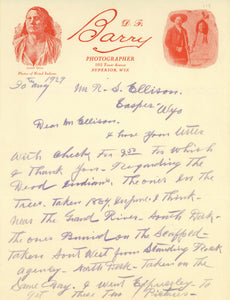 D. F.
Barry
PHOTOGRAPHER
SUPERIOR, WIS
30 Aug 1929
Mr R. S. Ellison.
Casper Wyo
Dear Mr Ellison.
I have your letter
with check for for which
I thank you. Regarding the
Dead Indians. The ones in the
Trees. taken I think
near the Grand River. South Dak.
the ones Buried on the Scaffold
taken West from Standing Rock
agency. North Dak. taken on the
Same day. I went Expressly to
get these Two Pictures